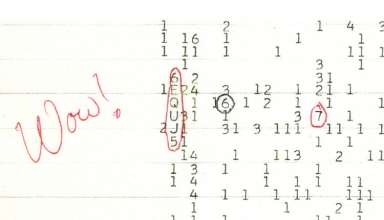 1 2 1 4 3
1 16 1 1 1
1 11 1 1 11 1
3 1
6 2 31
1 E 24 3 12 1 21 1
Wow!
Q 1 16 1 2 1 1 1
U 31 1 3 7 1
2 J 1 31 3 111 11 1 1
5 1 1
14 1 113 2 11
1 3 1 1 1
1 4 1 1 11
4 1 1 11 111 1
1 2 1